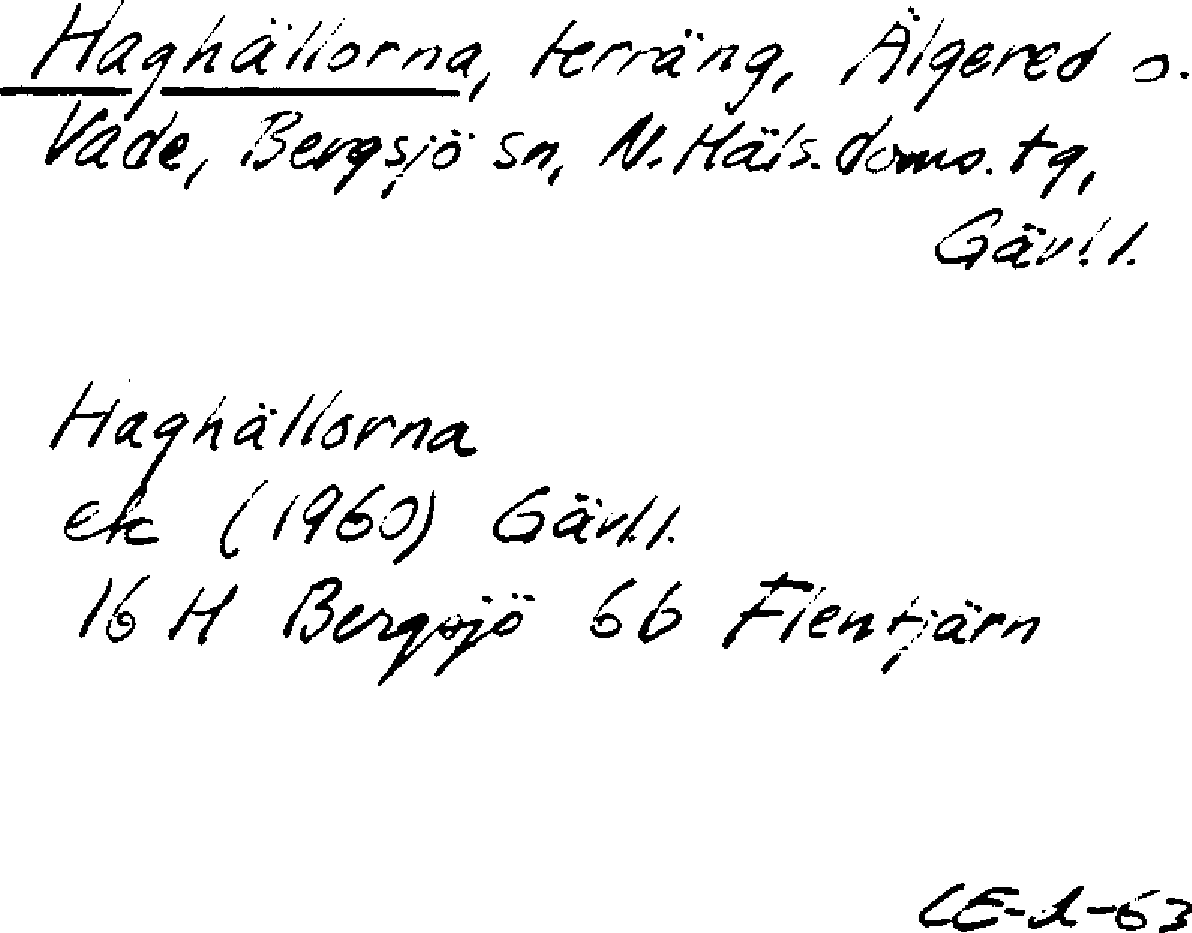 Haghällorna, terräng, Älgered o.
Vade, Bergsjö sn, N. Häls. doms. tg,
Gävl. l.
Haghällorna
ek (1960) Gävl. l.
16 H Bergsjö 6b Flentjärn
CE-1-63